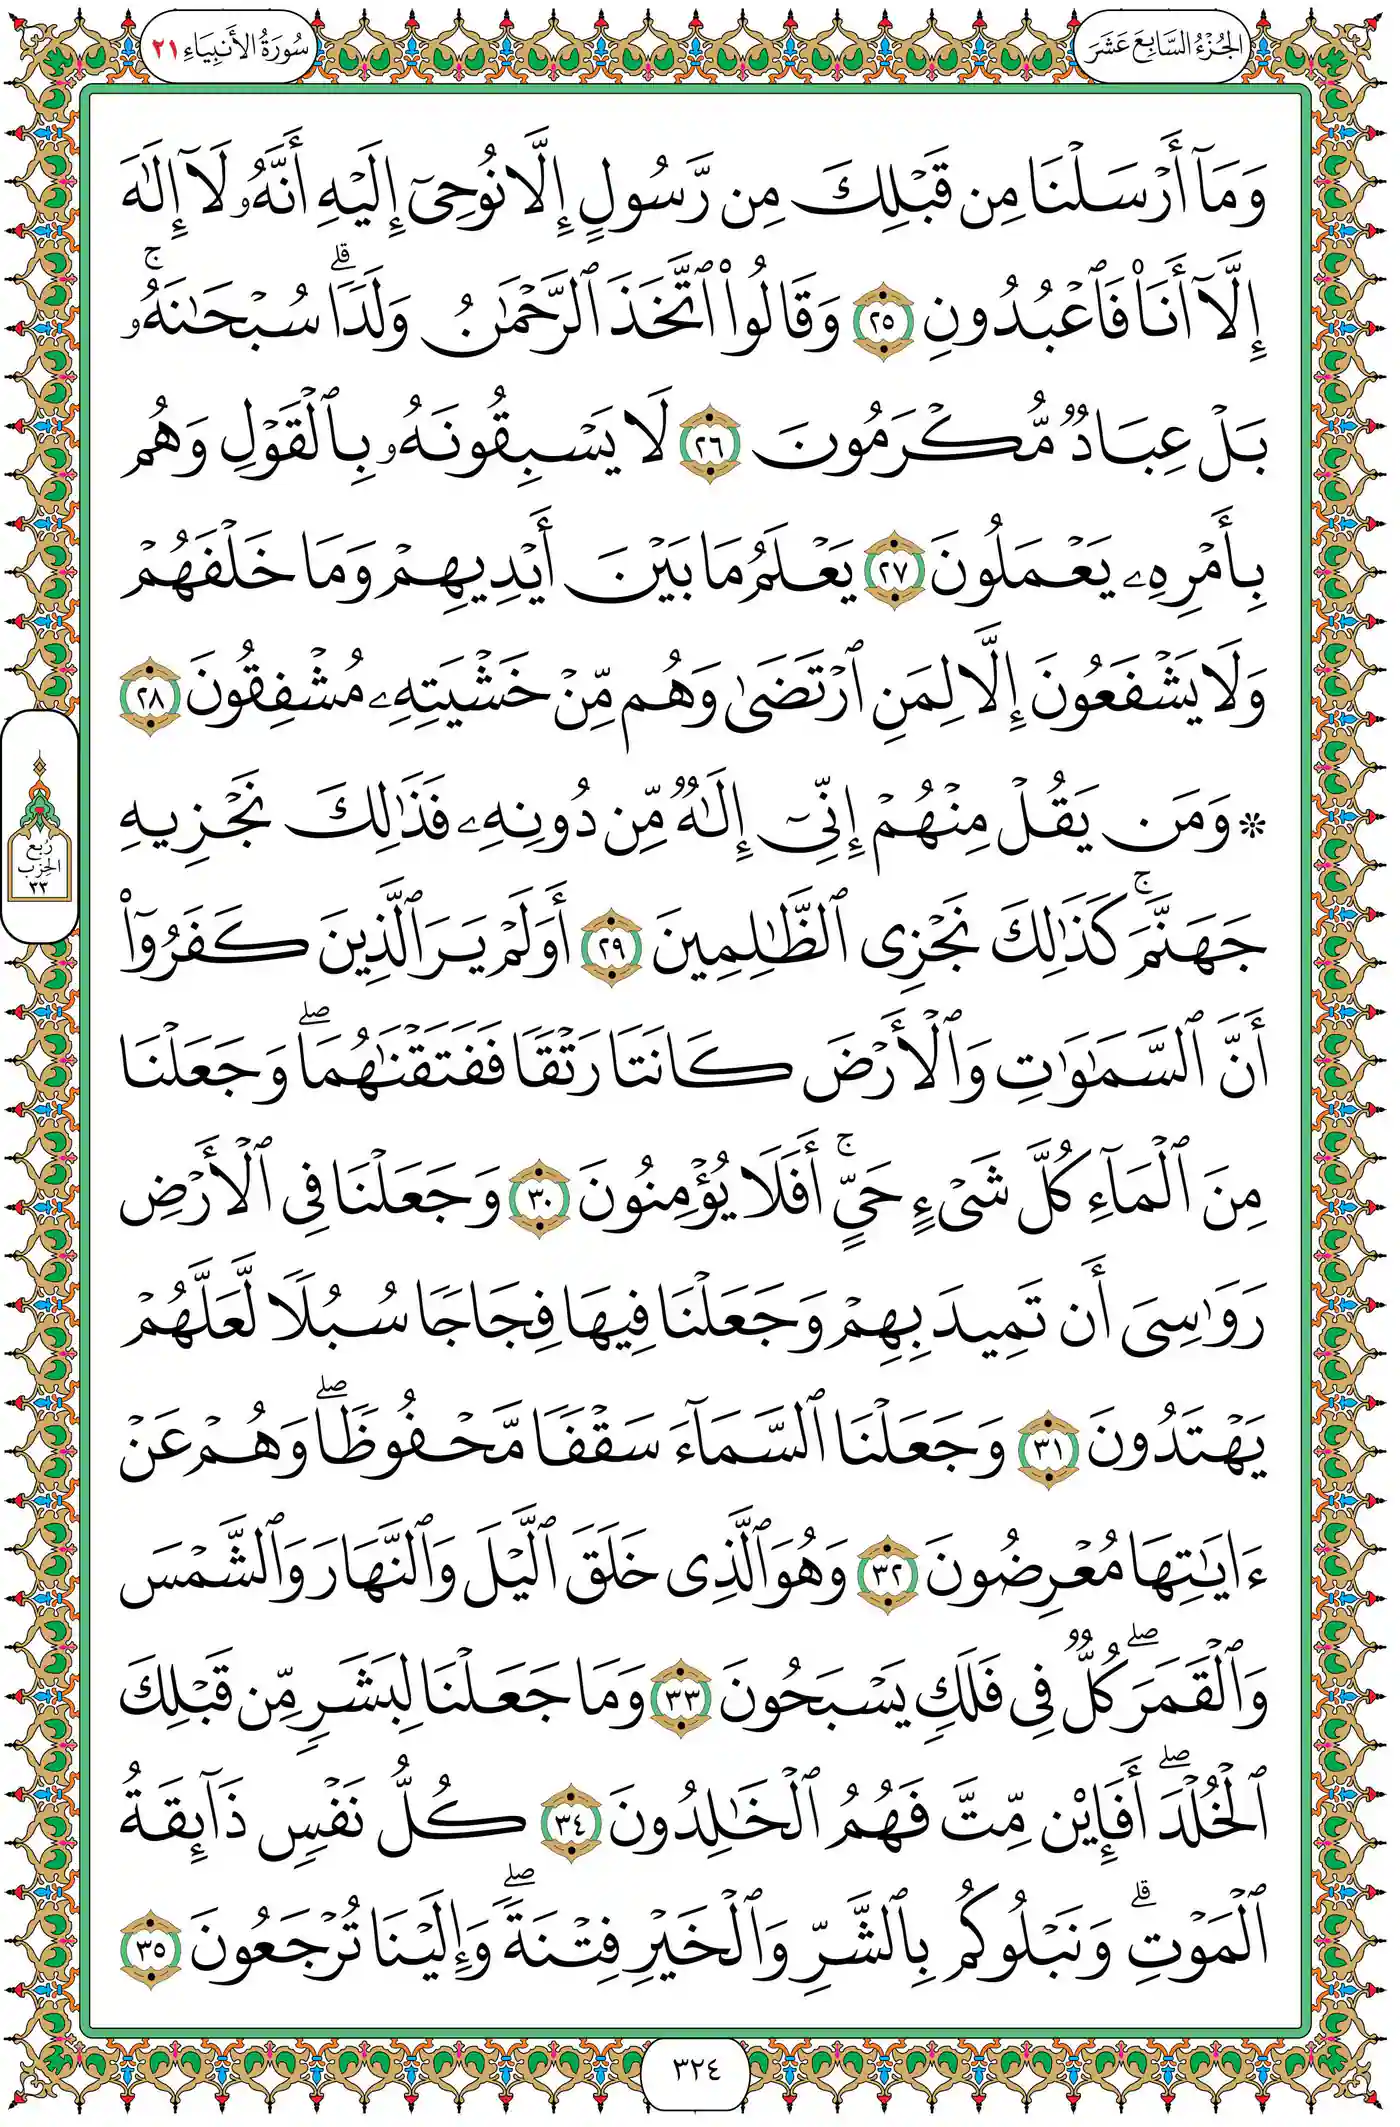 الجُزْءُ السَّابِعَ عَشَرَ
سُورَةُ الأَنبِيَاءِ ٢١
وَمَآ أَرۡسَلۡنَا مِن قَبۡلِكَ مِن رَّسُولٍ إِلَّا نُوحِيٓ إِلَيۡهِ أَنَّهُۥ لَآ إِلَٰهَ
إِلَّآ أَنَا۠ فَٱعۡبُدُونِ ٢٥ وَقَالُواْ ٱتَّخَذَ ٱلرَّحۡمَٰنُ وَلَدٗاۗ سُبۡحَٰنَهُۥۚ
بَلۡ عِبَادٞ مُّكۡرَمُونَ ٢٦ لَا يَسۡبِقُونَهُۥ بِٱلۡقَوۡلِ وَهُم
بِأَمۡرِهِۦ يَعۡمَلُونَ ٢٧ يَعۡلَمُ مَا بَيۡنَ أَيۡدِيهِمۡ وَمَا خَلۡفَهُمۡ
وَلَا يَشۡفَعُونَ إِلَّا لِمَنِ ٱرۡتَضَىٰ وَهُم مِّنۡ خَشۡيَتِهِۦ مُشۡفِقُونَ ٢٨
۞ وَمَن يَقُلۡ مِنۡهُمۡ إِنِّيٓ إِلَٰهٞ مِّن دُونِهِۦ فَذَٰلِكَ نَجۡزِيهِ
جَهَنَّمَۚ كَذَٰلِكَ نَجۡزِي ٱلظَّٰلِمِينَ ٢٩ أَوَلَمۡ يَرَ ٱلَّذِينَ كَفَرُوٓاْ
أَنَّ ٱلسَّمَٰوَٰتِ وَٱلۡأَرۡضَ كَانَتَا رَتۡقٗا فَفَتَقۡنَٰهُمَاۖ وَجَعَلۡنَا
مِنَ ٱلۡمَآءِ كُلَّ شَيۡءٍ حَيٍّۚ أَفَلَا يُؤۡمِنُونَ ٣٠ وَجَعَلۡنَا فِي ٱلۡأَرۡضِ
رَوَٰسِيَ أَن تَمِيدَ بِهِمۡ وَجَعَلۡنَا فِيهَا فِجَاجٗا سُبُلٗا لَّعَلَّهُمۡ
يَهۡتَدُونَ ٣١ وَجَعَلۡنَا ٱلسَّمَآءَ سَقۡفٗا مَّحۡفُوظٗاۖ وَهُمۡ عَنۡ
ءَايَٰتِهَا مُعۡرِضُونَ ٣٢ وَهُوَ ٱلَّذِي خَلَقَ ٱلَّيۡلَ وَٱلنَّهَارَ وَٱلشَّمۡسَ
وَٱلۡقَمَرَۖ كُلّٞ فِي فَلَكٖ يَسۡبَحُونَ ٣٣ وَمَا جَعَلۡنَا لِبَشَرٖ مِّن قَبۡلِكَ
ٱلۡخُلۡدَۖ أَفَإِيْن مِّتَّ فَهُمُ ٱلۡخَٰلِدُونَ ٣٤ كُلُّ نَفۡسٖ ذَآئِقَةُ
ٱلۡمَوۡتِۗ وَنَبۡلُوكُم بِٱلشَّرِّ وَٱلۡخَيۡرِ فِتۡنَةٗۖ وَإِلَيۡنَا تُرۡجَعُونَ ٣٥
رُبع
الحِزب
٣٣
٣٢٤